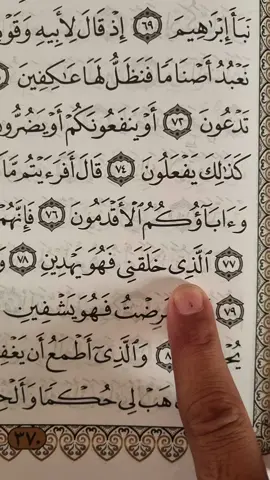 نَبَأَ إِبْرَٰهِيمَ ٦٩ إِذْ قَالَ لِأَبِيهِ وَقَوْ
نَعْبُدُ أَصْنَامًا فَنَظَلُّ لَهَا عَٰكِفِينَ
تَدْعُونَ ٧٢ أَوْ يَنفَعُونَكُمْ أَوْ يَضُرُّونَ
كَذَٰلِكَ يَفْعَلُونَ ٧٤ قَالَ أَفَرَءَيْتُم مَّا
وَءَابَآؤُكُمُ ٱلْأَقْدَمُونَ ٧٦ فَإِنَّهُمْ
٧٧ ٱلَّذِى خَلَقَنِى فَهُوَ يَهْدِينِ ٧٨ وَ
مَرِضْتُ فَهُوَ يَشْفِينِ ٧٩
وَٱلَّذِىٓ أَطْمَعُ أَن يَغْفِ
هَبْ لِى حُكْمًا وَأَلْحِ
٣٧٠